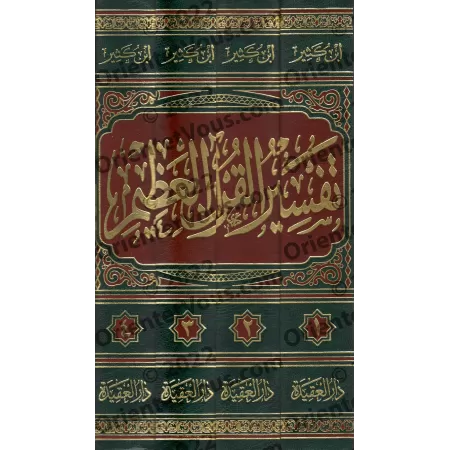 ابن كثير ابن كثير ابن كثير ابن كثير
تفسير القرآن العظيم
١ ٢ ٣ ٤
دار العقيدة دار العقيدة دار العقيدة دار العقيدة
OrientetVous.com © 2022